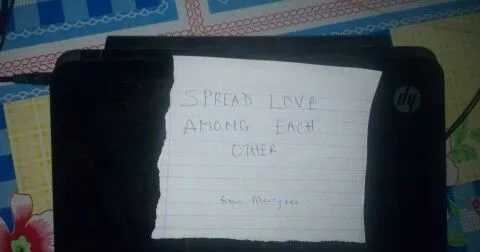 hp
SPREAD LOVE
AMONG EACH
OTHER
from